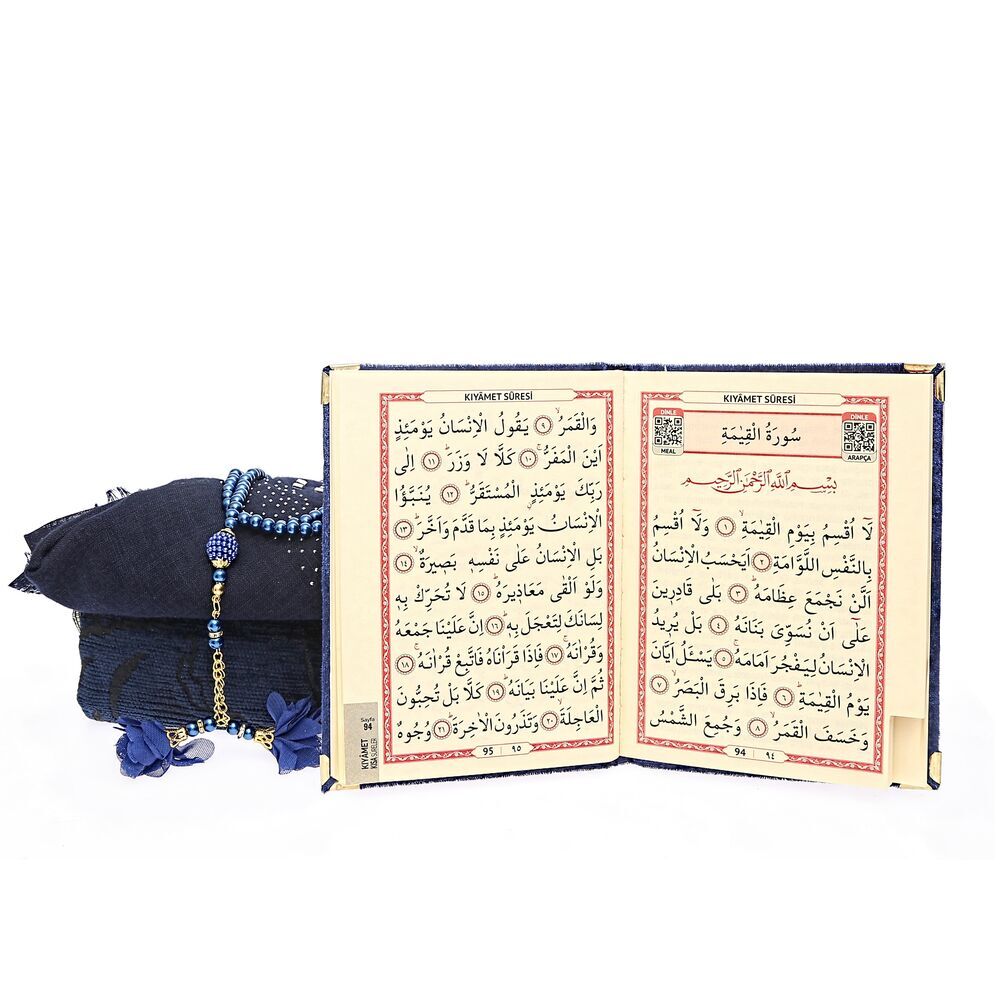 KIYÂMET SÛRESİ
DİNLE
MEAL
سُورَةُ الْقِيٰمَةِ
DİNLE
ARAPÇA
بِسْمِ اللّٰهِ الرَّحْمٰنِ الرَّحِيمِ
لَٓا اُقْسِمُ بِيَوْمِ الْقِيٰمَةِۙ ﴿١﴾ وَلَٓا اُقْسِمُ
بِالنَّفْسِ اللَّوَّامَةِ ﴿٢﴾ اَيَحْسَبُ الْاِنْسَانُ
اَلَّنْ نَجْمَعَ عِظَامَهُۜ ﴿٣﴾ بَلٰى قَادِرِينَ
عَلٰٓى اَنْ نُسَوِّىَ بَنَانَهُ ﴿٤﴾ بَلْ يُرِيدُ
الْاِنْسَانُ لِيَفْجُرَ اَمَامَهُۚ ﴿٥﴾ يَسْـَٔلُ اَيَّانَ
يَوْمُ الْقِيٰمَةِۜ ﴿٦﴾ فَاِذَا بَرِقَ الْبَصَرُۙ ﴿٧﴾
وَخَسَفَ الْقَمَرُۙ ﴿٨﴾ وَجُمِعَ الشَّمْسُ
94 ٩٤
KIYÂMET SÛRESİ
وَالْقَمَرُۙ ﴿٩﴾ يَقُولُ الْاِنْسَانُ يَوْمَئِذٍ
اَيْنَ الْمَفَرُّۚ ﴿١٠﴾ كَلَّا لَا وَزَرَۜ ﴿١١﴾ اِلٰى
رَبِّكَ يَوْمَئِذٍ الْمُسْتَقَرُّۜ ﴿١٢﴾ يُنَبَّؤُا
الْاِنْسَانُ يَوْمَئِذٍ بِمَا قَدَّمَ وَاَخَّرَۜ ﴿١٣﴾
بَلِ الْاِنْسَانُ عَلٰى نَفْسِهِ بَصِيرَةٌۙ ﴿١٤﴾
وَلَوْ اَلْقٰى مَعَاذِيرَهُۜ ﴿١٥﴾ لَا تُحَرِّكْ بِهِ
لِسَانَكَ لِتَعْجَلَ بِهِۜ ﴿١٦﴾ اِنَّ عَلَيْنَا جَمْعَهُ
وَقُرْاٰنَهُۚ ﴿١٧﴾ فَاِذَا قَرَاْنَاهُ فَاتَّبِعْ قُرْاٰنَهُۚ ﴿١٨﴾
ثُمَّ اِنَّ عَلَيْنَا بَيَانَهُۜ ﴿١٩﴾ كَلَّا بَلْ تُحِبُّونَ
الْعَاجِلَةَۙ ﴿٢٠﴾ وَتَذَرُونَ الْاٰخِرَةَۜ ﴿٢١﴾ وُجُوهٌ
95 ٩٥
Sayfa
94
KIYÂMET
KISA SURELER